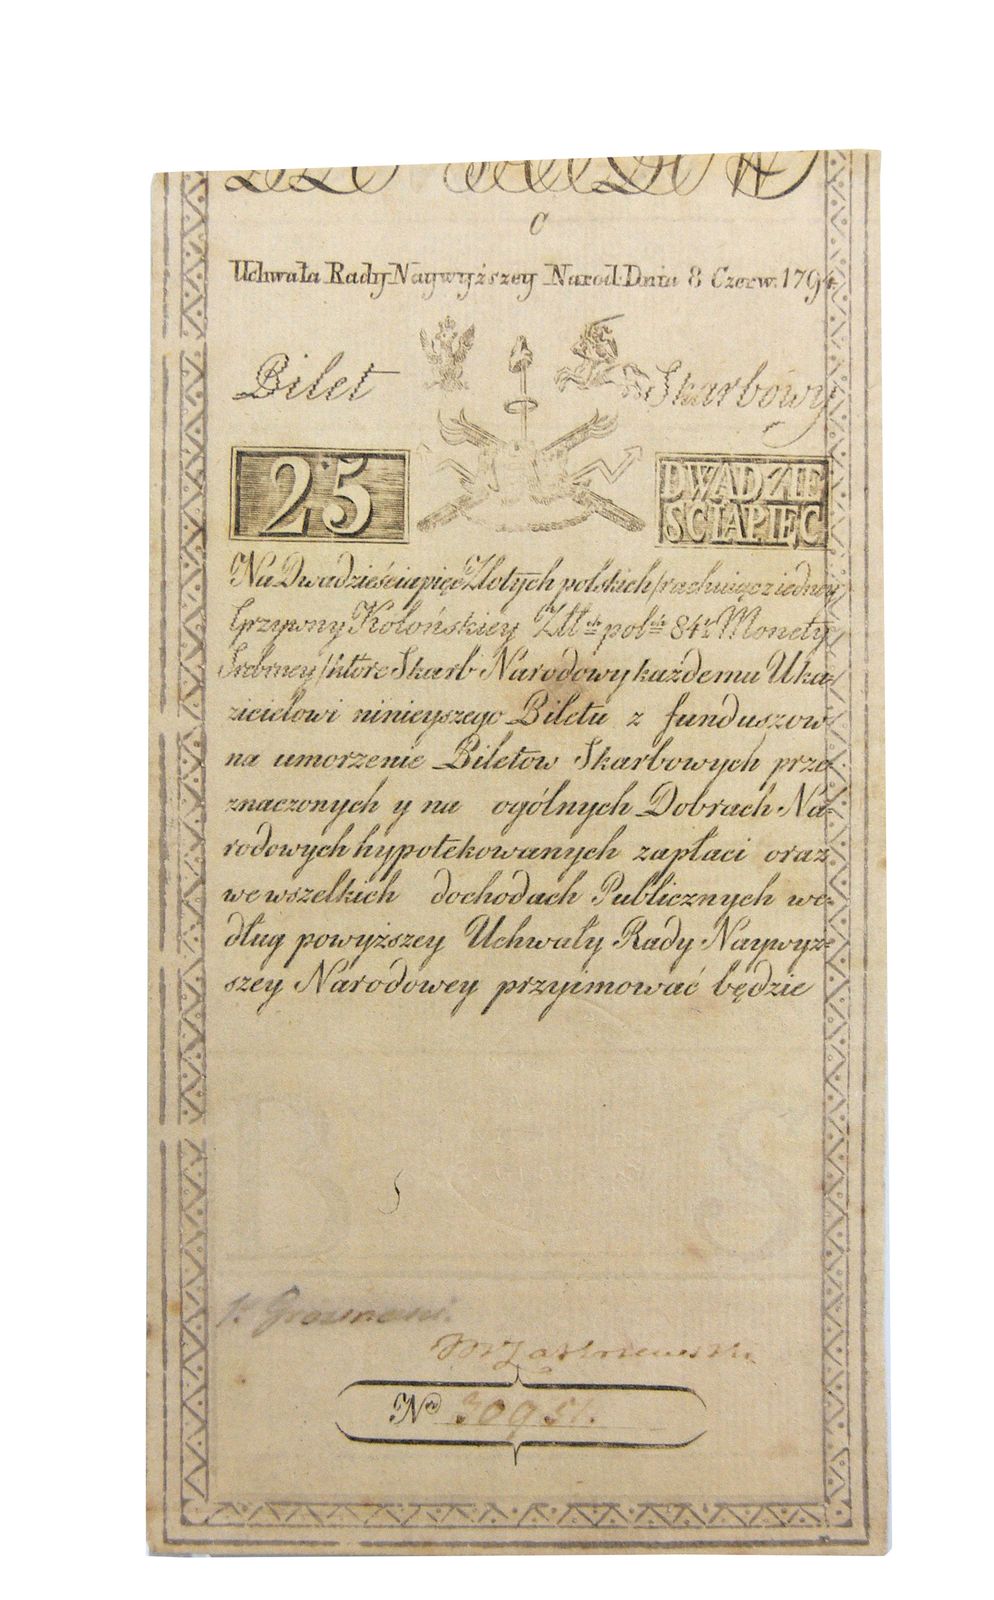 C
Uchwała Rady Naywyższey Narod: Dnia 8 Czerw. 1794
Bilet Skarbowy
25 DWADZIE
SCIAPIĘC
Na Dwadzieściapięć Złotych polskich /rachuiąc z iedney
Grzywny Kolońskiey Złł. pol. 84½ Monety
Srebrney/ które Skarb Narodowy każdemu Uka-
zicielowi ninieyszego Biletu z funduszow
na umorzenie Biletow Skarbowych prze-
znaczonych y na ogólnych Dobrach Na-
rodowych hypotekowanych zapłaci oraz
we wszelkich dochodach Publicznych we-
dług powyższey Uchwały Rady Naywyż-
szey Narodowey przyimować będzie
Nro 30951.